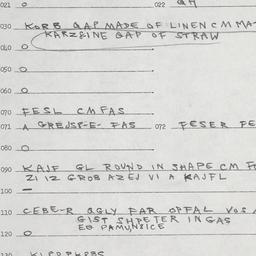 021 O 022
030 KORB GAP MADE OF LINEN CM MA
KARZEINE GAP OF STRAW
040 O
050 O
060 O
070 FESL CM FAS
071 A GREJSP-E- FAS 072 FESER FE
080 O
090 KAJF GL ROUND IN SHAPE CM F
ZI IZ GROB AZEJ VI A KAJFL
100 —
110 CEBE-R OGLY FAR OFFAL VOS
GIST SHPETER IN GAS
EG PAMUNICE
120 O